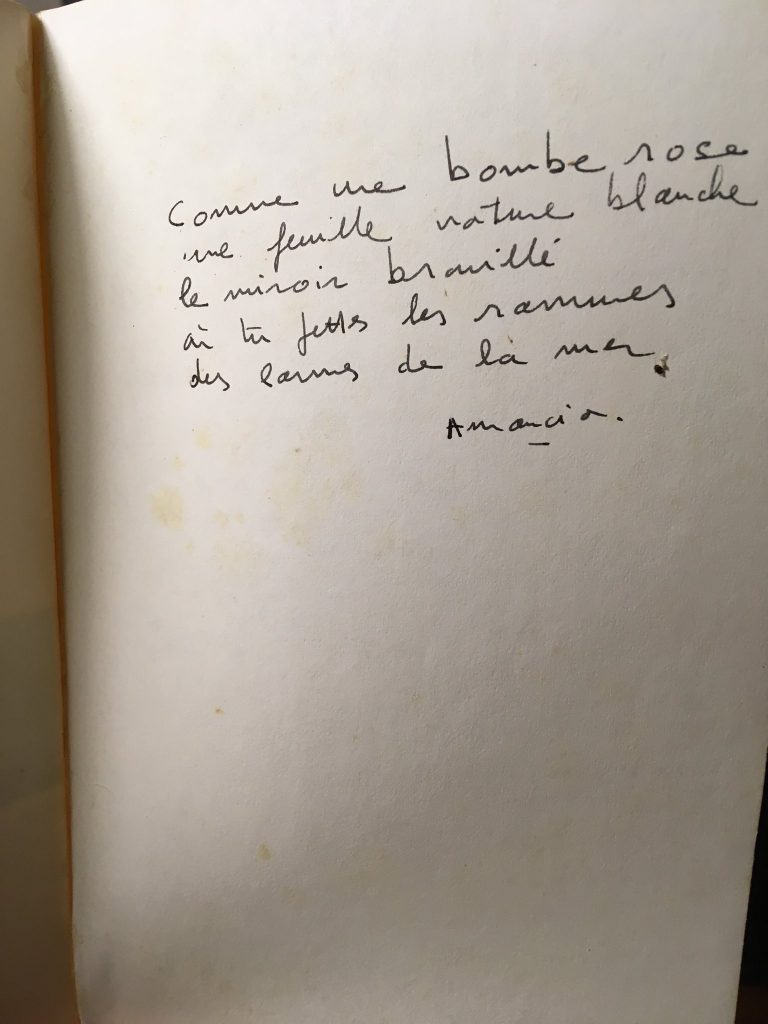 Comme une bombe rose
une feuille nature blanche
le miroir brouillé
où tu jettes les rammes
des larmes de la mer.
Amancia.